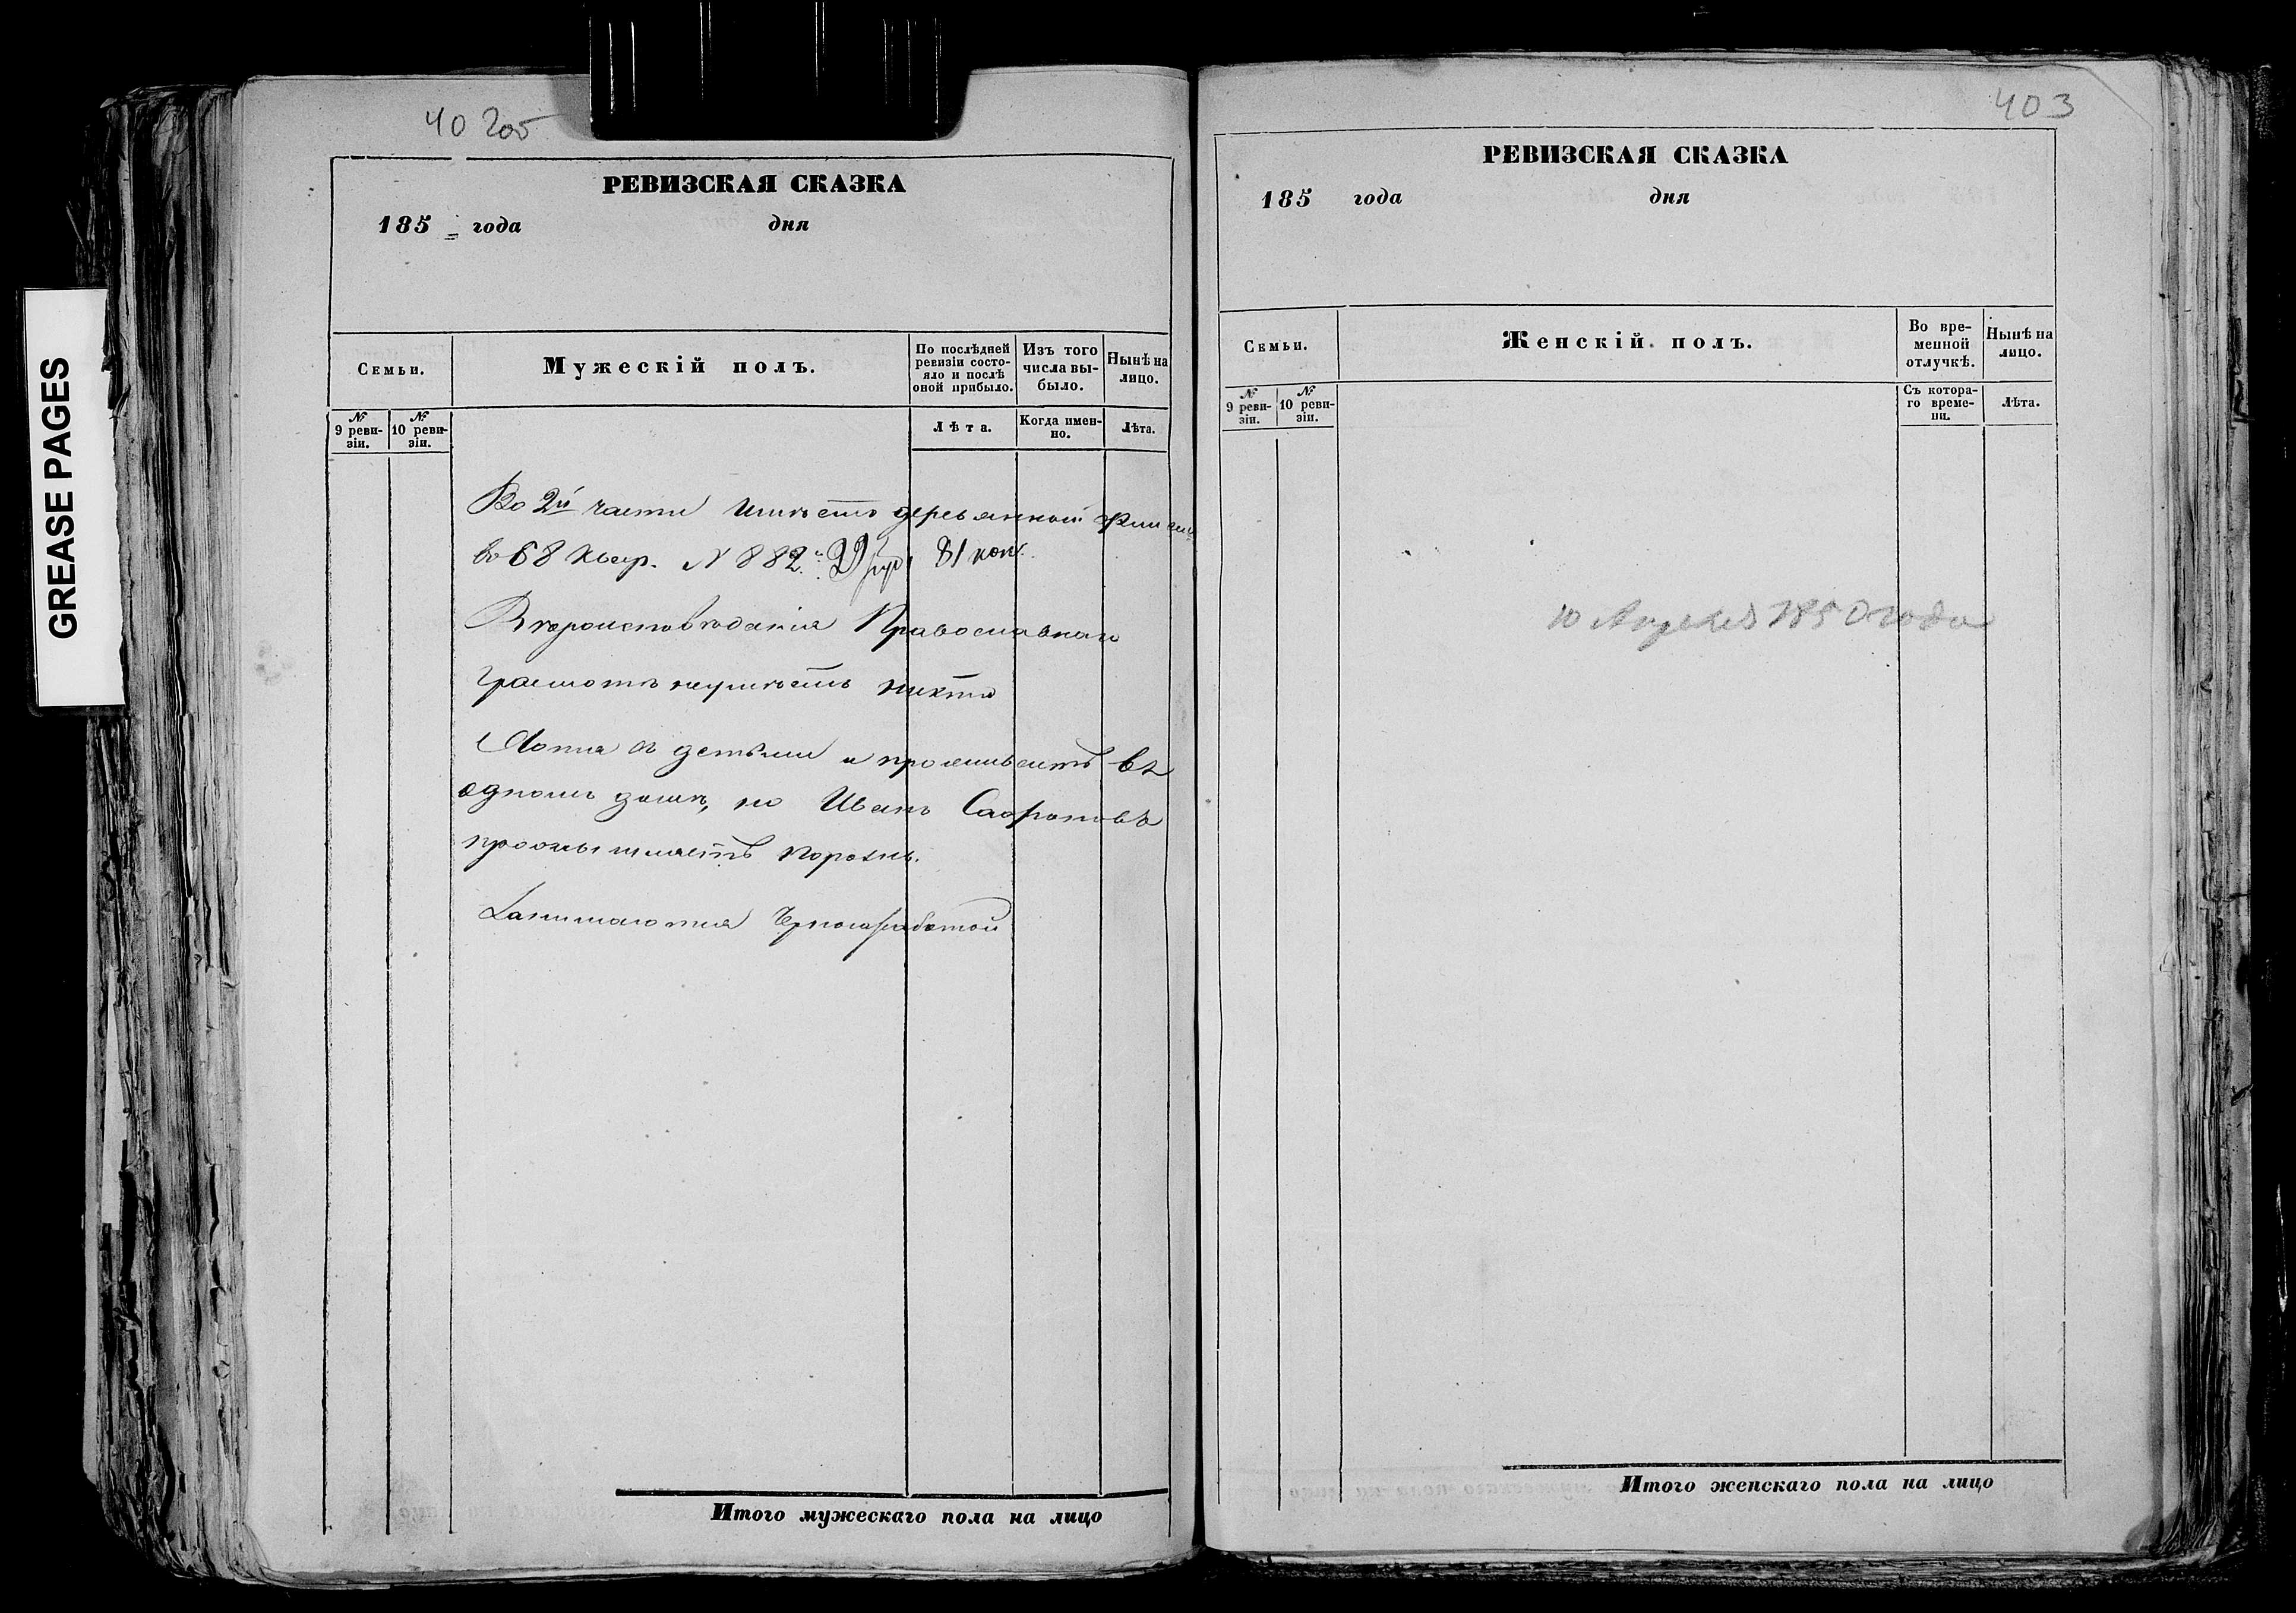 GREASE PAGES
40 2об
РЕВИЗСКАЯ СКАЗКА
185 года дня
Семьи.
Мужескій полъ.
По послѣдней ревизіи состо-
яло и послѣ
оной прибыло.
Изъ того
числа вы-
было.
Нынѣ на
лицо.
№
9 реви-
зіи.
№
10 реви-
зіи.
Лѣта.
Когда имен-
но.
Лѣта.
Во 2й части имѣетъ деревянной
во 68 квар. N 882. 29 руб 81 коп.
Вѣроисповѣданія Православнаго
грамотѣ неумѣетъ никто
Хотя съ детьми и проживаетъ въ
одномъ домѣ, но Иванъ Сафроновъ
промышляетъ порознь.
Занимаются Чорнойработой
Итого мужескаго пола на лицо
403
РЕВИЗСКАЯ СКАЗКА
185 года дня
Семьи.
Женскій полъ.
Во вре-
менной
отлучкѣ.
Нынѣ на
лицо.
№
9 реви-
зіи.
№
10 реви-
зіи.
Съ котора-
го време-
ни.
Лѣта.
10 Апреля 1850 года
Итого женскаго пола на лицо